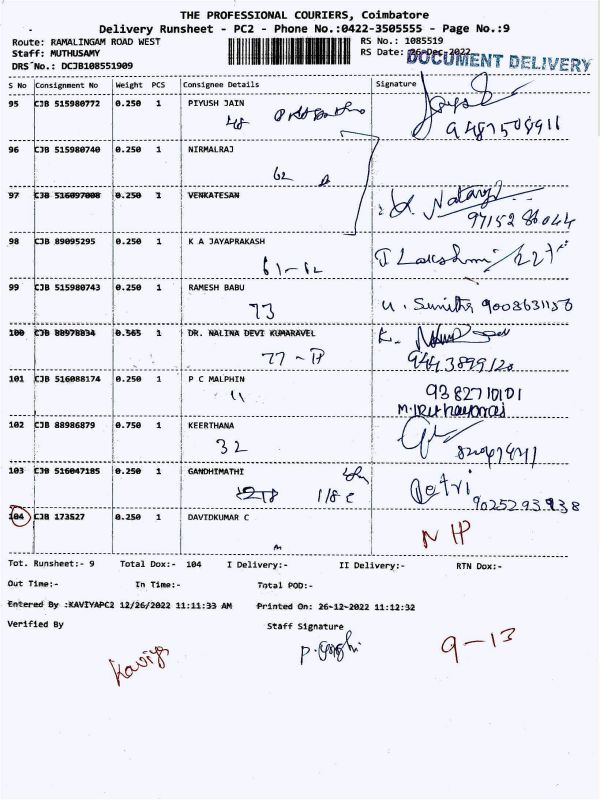 THE PROFESSIONAL COURIERS, Coimbatore
Delivery Runsheet - PC2 - Phone No.:0422-3505555 - Page No.:9
Route: RAMALINGAM ROAD WEST
RS No.: 1085519
Staff: MUTHUSAMY
RS Date: 26-Dec-2022
DOCUMENT DELIVERY
DRS No.: DCJB108551909
S No Consignment No Weight PCS Consignee Details Signature
95 CJB 515980772 0.250 1 PIYUSH JAIN
48
9487508911
96 CJB 515980740 0.250 1 NIRMALRAJ
62
97 CJB 516097008 0.250 1 VENKATESAN
9715286044
98 CJB 89095295 0.250 1 K A JAYAPRAKASH
61-62
J Lakshmi
99 CJB 515980743 0.250 1 RAMESH BABU
73
U. Sunitha 9008631156
100 CJB 88978834 0.565 1 DR. NALINA DEVI KUMARAVEL
K.
77-P
9443899120
101 CJB 516088174 0.250 1 P C MALPHIN
11
9382710101
102 CJB 88986879 0.750 1 KEERTHANA
32
103 CJB 516047185 0.250 1 GANDHIMATHI
118 C
Petri
9025293938
104 CJB 173527 0.250 1 DAVIDKUMAR C
NP
Tot. Runsheet:- 9 Total Dox:- 104 I Delivery:- II Delivery:- RTN Dox:-
Out Time:- In Time:- Total POD:-
Entered By :KAVIYAPC2 12/26/2022 11:11:33 AM Printed On: 26-12-2022 11:12:32
Verified By Staff Signature
Kaviya
9-13